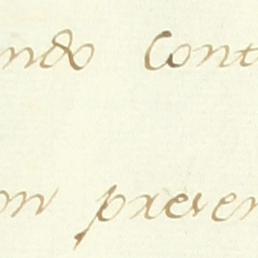 ndo Cont
on preven